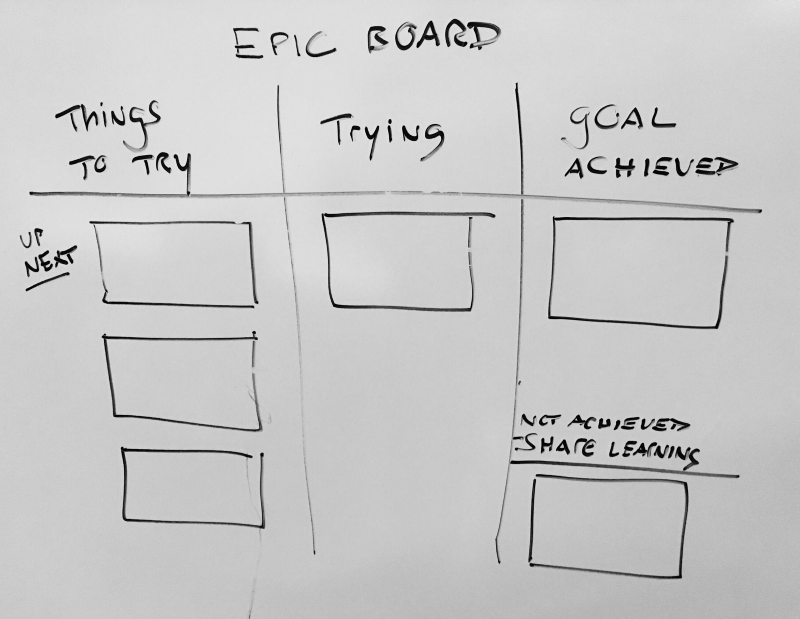 EPIC BOARD
Things
TO TRY
Trying
GOAL
ACHIEVED
UP
NEXT
NOT ACHIEVED
-SHARE LEARNING